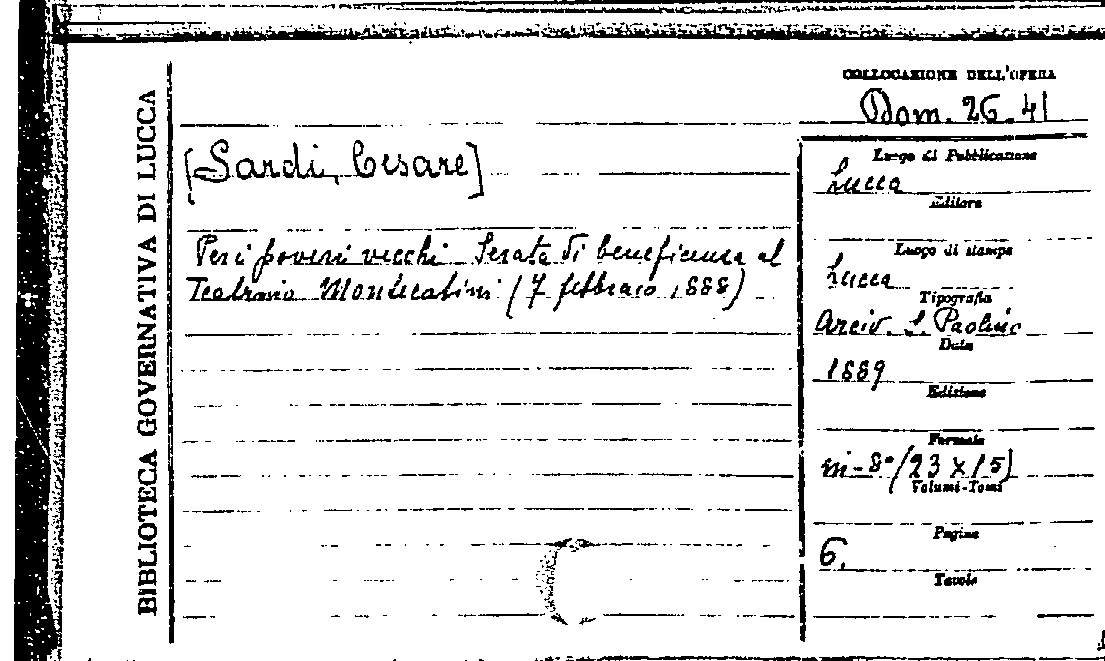 BIBLIOTECA GOVERNATIVA DI LUCCA
COLLOCAZIONE DELL'OPERA
Dom. 26.41
[Sardi, Cesare]
Per i poveri vecchi. Serata di beneficenza al
Teatrino Montecatini (7 febbraio 1888)
Luogo di Pubblicazione
Lucca
Editore
Luogo di stampa
Lucca
Tipografia
Arciv. S. Paolino
Data
1889
Edizione
Formato
in-8° (23 x 15)
Volumi-Tomi
Pagine
6.
Tavole